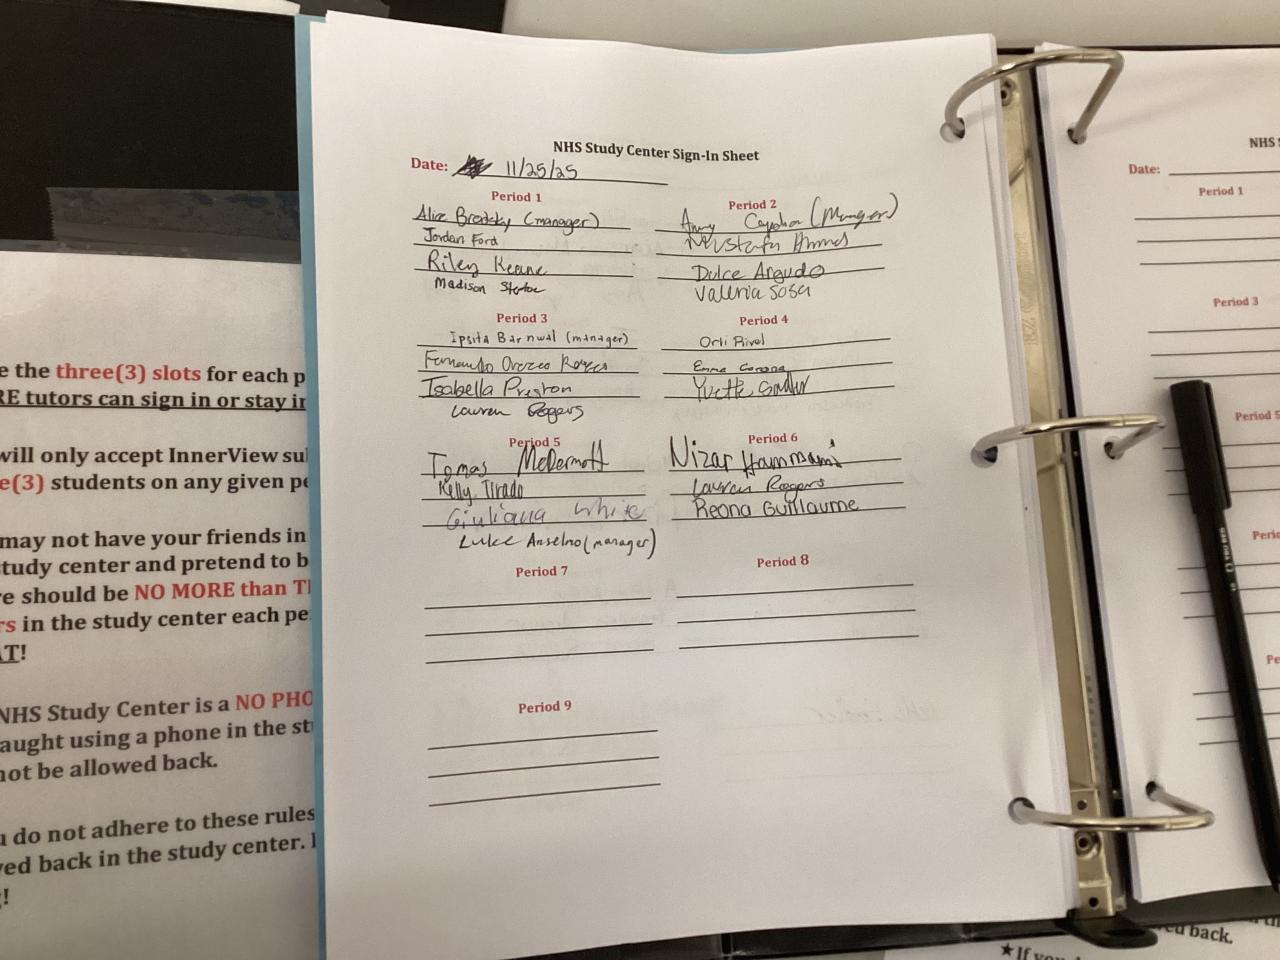 NHS Study Center Sign-In Sheet
Date: 11/25/25
Period 1
Alice Brodsky (manager)
Jordan Ford
Riley Keane
Madison
Period 2
(Manager)
Mustafa Ahmed
Dulce Argudo
Valeria Sosa
Period 3
Ipsita Barnwal (manager)
Fernando Orozco
Isabella Preston
Lauren Rogers
Period 4
Orli
Emma Corona
Yvette
Period 5
Tomas McDermott
Kelly Tirado
Giuliana White
Luke Anselmo (manager)
Period 6
Nizar Hammami
Lauren Rogers
Reana Guillaume
Period 7
Period 8
Period 9
e the three(3) slots for each p
RE tutors can sign in or stay in
will only accept InnerView su
e(3) students on any given pe
may not have your friends in
study center and pretend to b
re should be NO MORE than T
rs in the study center each pe
AT!
NHS Study Center is a NO PHO
aught using a phone in the st
not be allowed back.
u do not adhere to these rules
ved back in the study center.
!
NHS
Date:
Period 1
Period 3
Period 5
Perio
Pe
ed back.
★If you